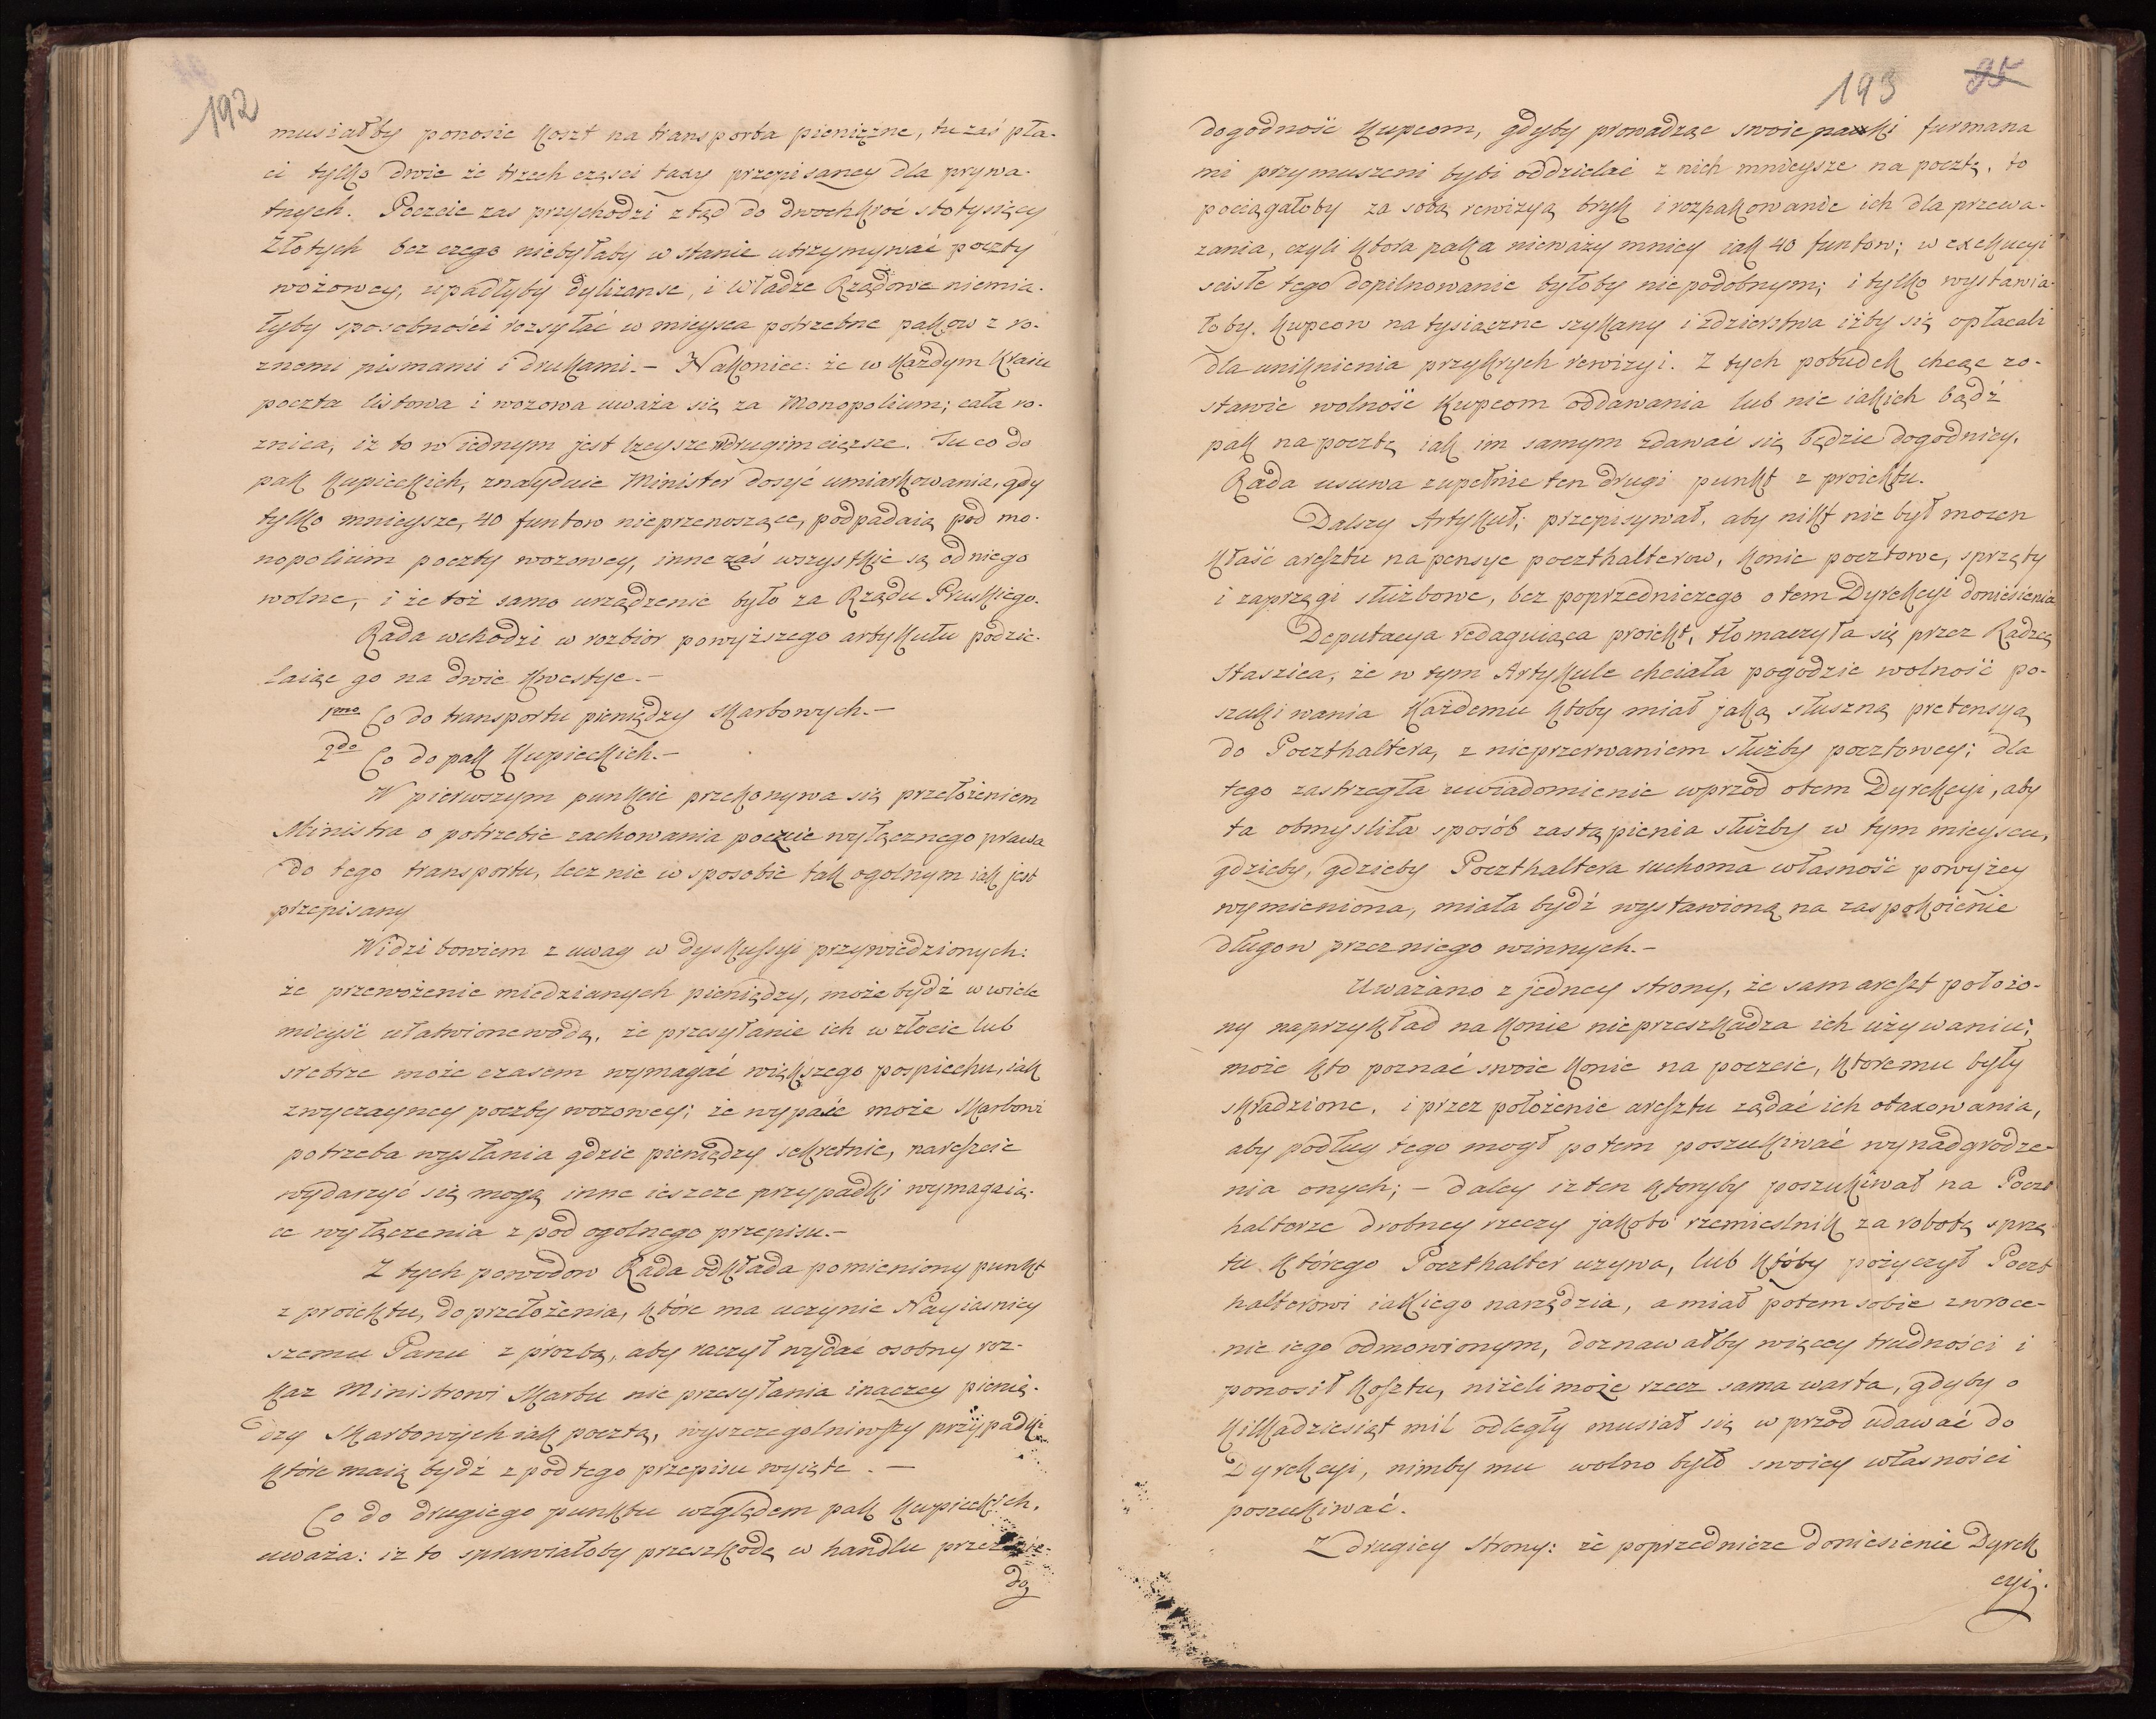 192
musiałby ponosić koszt na transporta pieniężne, tu zaś pła-
ci tylko dwie ze trzech części taxy przepisaney dla prywa-
tnych. Poczcie zas przychodzi ztąd do dwochkroć stotysięcy
Złotych bez czego niebyłaby w stanie utrzymywać poczty
wozowey, upadłyby dyliżanse, i Władze Rządowe niemia-
łyby sposobności rozsyłać w mieysca potrzebne pakow z ro-
znemi pismami i drukami. – Nakoniec: że w każdym kraiu
poczta listowa i wozowa uważa się za Monopolium; cała ro-
znica, iż to w iednym jest lżeysze w drugim cięższe. Tu co do
pak kupieckich, znayduie Minister dosyć umiarkowania, gdy
tylko mnieysze, 40 funtow nieprzenoszące, podpadaią pod mo-
nopolium poczty wozowey, inne zaś wszystkie są od niego
wolne, i że toż samo urządzenie było za Rządu Pruskiego.
Rada wchodzi w rozbior powyższego artykułu podzie-
laiąc go na dwie kwestye. –
1mo Co do transportu pieniędzy skarbowych. –
2do Co do pak kupieckich. –
W pierwszym punkcie przekonywa się przełożeniem
Ministra o potrzebie zachowania poczcie wyłącznego prawa
do tego transportu, lecz nie w sposobie tak ogolnym iak jest
przepisany
Widzi bowiem z uwag w dyskussyi przywiedzionych:
że przewożenie miedzianych pieniędzy, może bydź w wiele
mieysc ułatwione wodą, że przesyłanie ich w złocie lub
srebrze może czasem wymagać większego pospiechu, iak
zwyczayney poczty wozowey; że wypaść może Skarbowi
potrzeba wysłania gdzie pieniędzy sekretnie, nareszcie
wydarzyć się mogą inne ieszcze przypadki wymagaią-
ce wyłączenia z pod ogolnego przepisu. –
Z tych powodow Rada odkłada pomieniony punkt
z proiektu, do przełożenia, które ma uczynić Nayiasniey
szemu Panu z prozbą, aby raczył wydać osobny roz-
kaz Ministrowi Skarbu nie przesyłania inaczey pienię-
dzy Skarbowych iak pocztą, wyszczegolniwszy przypadki
które maią bydź z pod tego przepisu wyięte. –
Co do drugiego punktu względem pak kupieckich,
uważa: iż to sprawiałoby przeszkodę w handlu przez
dg
193
95
dogodność kupcom, gdyby prowadząc swoie paki furmana
mi przymuszeni byli oddzielać z nich mnieysze na pocztę, to
pociągałoby za sobą rewizyą bryk i rozpakowanie ich dla przewa-
zania, czyli ktora paka nieważy mniey iak 40 funtow; w exekucyi
scisłe tego dopilnowanie byłoby niepodobnym; i tylko wystawia-
łoby kupcow na tysiączne szykany i zdzierstwa iżby się opłacali
dla uniknienia przykrych rewizyi. Z tych pobudek chcąc zo-
stawić wolność kupcom oddawania lub nie iakich bądź
pak na pocztę iak im samym zdawać się będzie dogodniey,
Rada usuwa zupełnie ten drugi punkt z proiektu.
Dalszy Artykuł; przepisywał, aby nikt nie był mocen
kłaść aresztu na pensye poczthalterow, konie pocztowe, sprzęty
i zaprzęgi służbowe, bez poprzedniczego o tem Dyrekcyi doniesienia
Deputacya redaguiąca proiekt, tłomaczyła się przez Radzcę
Staszica, że w tym Artykule chciała pogodzić wolność po-
szukiwania każdemu ktoby miał jaką słuszną pretensyą
do Poczthaltera, z nieprzerwaniem służby pocztowey; dla
tego zastrzegła uwiadomienie wprzod o tem Dyrekcyi, aby
ta obmysliła sposób zastąpienia służby w tym mieyscu,
gdzieby, gdzieby Poczthaltera ruchoma własność powyżey
wymieniona, miała bydź wystawioną na zaspokoienie
długow przez niego winnych. –
Uważano z jedney strony, że sam areszt położo-
ny naprzykład na konie nieprzeszkadza ich używaniu;
może kto poznać swoie konie na poczcie, ktoremu były
skradzione, i przez położenie aresztu ządać ich otaxowania,
aby podług tego mogł potem poszukiwać wynadgrodze-
nia onych; – daley iż ten ktoryby poszukiwał na Poczt
halterze drobney rzeczy jakoto rzemieslnik za robotę sprzę
tu którego Poczthalter uzywa, lub któby pożyczył Poczt
halterowi iakiego narzędzia, a miał potem sobie zwroce-
nie iego odmowionym, doznawałby więcey trudności i
ponosił kosztu, niżeli może rzecz sama warta, gdyby o
kilkadziesiąt mil odległy musiał się wprzod udawać do
Dyrekcyi, nimby mu wolno było swoiey własności
poszukiwać.
Z drugiey strony: że poprzednicze doniesienie Dyrek
cyi.